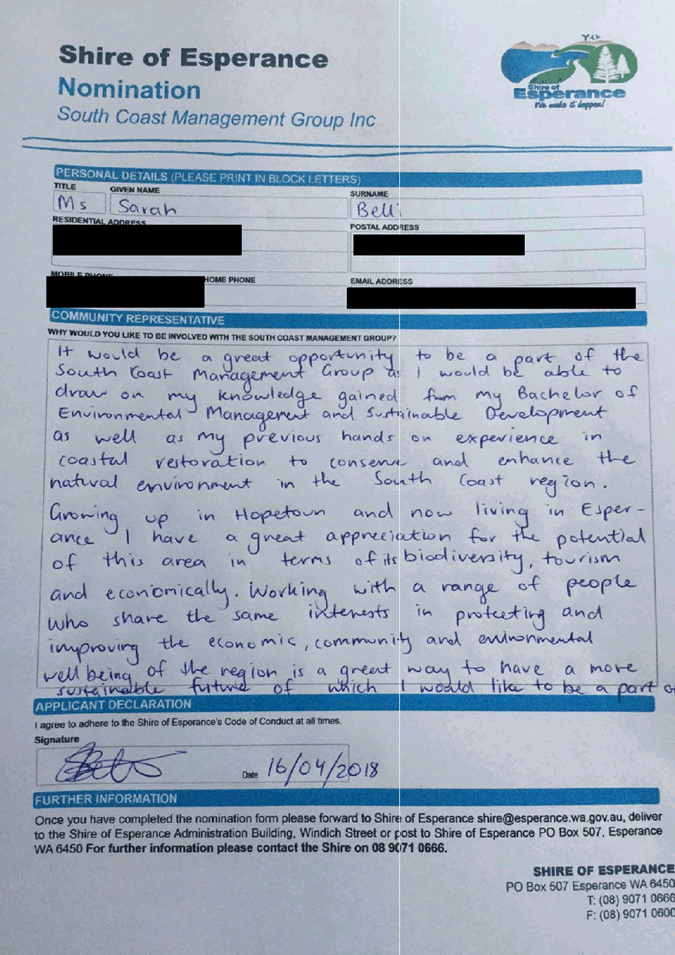 Shire of Esperance
Nomination
South Coast Management Group Inc
Shire of
Esperance
We make it happen!
PERSONAL DETAILS (PLEASE PRINT IN BLOCK LETTERS)
TITLE GIVEN NAME SURNAME
Ms Sarah Bell
RESIDENTIAL ADDRESS POSTAL ADDRESS
MOBILE PHONE HOME PHONE EMAIL ADDRESS
COMMUNITY REPRESENTATIVE
WHY WOULD YOU LIKE TO BE INVOLVED WITH THE SOUTH COAST MANAGEMENT GROUP?
It would be a great opportunity to be a part of the
South Coast Management Group as I would be able to
draw on my knowledge gained from my Bachelor of
Environmental Management and Sustainable Development
as well as my previous hands on experience in
coastal restoration to conserve and enhance the
natural environment in the South Coast region.
Growing up in Hopetoun and now living in Esper-
ance I have a great appreciation for the potential
of this area in terms of its biodiversity, tourism
and economically. Working with a range of people
who share the same interests in protecting and
improving the economic, community and environmental
well being of the region is a great way to have a more
sustainable future of which I would like to be a part of
APPLICANT DECLARATION
I agree to adhere to the Shire of Esperance's Code of Conduct at all times.
Signature
Date 16/04/2018
FURTHER INFORMATION
Once you have completed the nomination form please forward to Shire of Esperance shire@esperance.wa.gov.au, deliver
to the Shire of Esperance Administration Building, Windich Street or post to Shire of Esperance PO Box 507, Esperance
WA 6450 For further information please contact the Shire on 08 9071 0666.
SHIRE OF ESPERANCE
PO Box 507 Esperance WA 6450
T: (08) 9071 0666
F: (08) 9071 0600